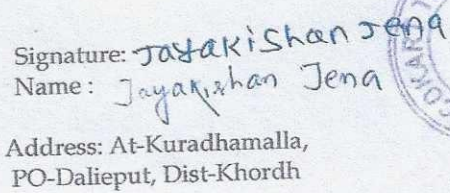 Signature: Jayakishan Jena
Name : Jayakishan Jena
Address: At-Kuradhamalla,
PO-Dalieput, Dist-Khordh